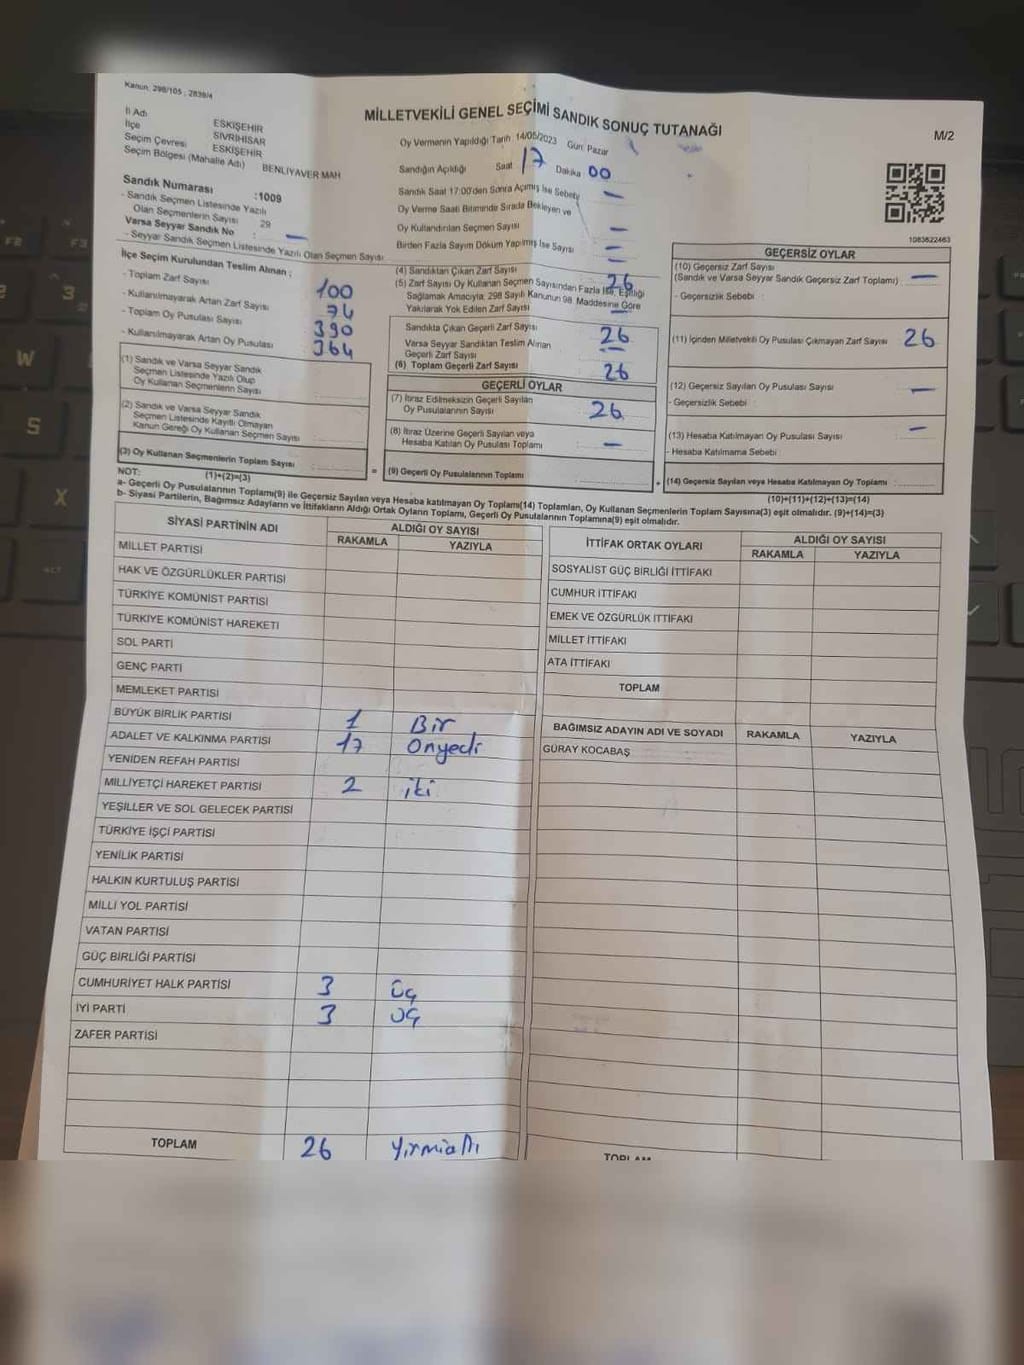 Kanun: 298/105 ; 2839/4
MİLLETVEKİLİ GENEL SEÇİMİ SANDIK SONUÇ TUTANAĞI
M/2
İl Adı ESKİŞEHİR
İlçe SİVRİHİSAR
Seçim Çevresi ESKİŞEHİR
Seçim Bölgesi (Mahalle Adı) BENLİYAVER MAH
Sandık Numarası :1009
- Sandık Seçmen Listesinde Yazılı
Olan Seçmenlerin Sayısı 29
Varsa Seyyar Sandık No : —
- Seyyar Sandık Seçmen Listesinde Yazılı Olan Seçmen Sayısı
Oy Vermenin Yapıldığı Tarih 14/05/2023 Gün: Pazar
Sandığın Açıldığı Saat 17 Dakika 00
Sandık Saat 17:00'den Sonra Açımış İse Sebebi —
Oy Verme Saati Bitiminde Sırada Bekleyen ve
Oy Kullandırılan Seçmen Sayısı —
Birden Fazla Sayım Döküm Yapılmış İse Sayısı —
1083622463
İlçe Seçim Kurulundan Teslim Alınan ;
- Toplam Zarf Sayısı 100
- Kullanılmayarak Artan Zarf Sayısı 74
- Toplam Oy Pusulası Sayısı 390
- Kullanılmayarak Artan Oy Pusulası 364
(1) Sandık ve Varsa Seyyar Sandık
Seçmen Listesinde Yazılı Olup
Oy Kullanan Seçmenlerin Sayısı
(2) Sandık ve Varsa Seyyar Sandık
Seçmen Listesinde Kayıtlı Olmayan
Kanun Gereği Oy Kullanan Seçmen Sayısı
(3) Oy Kullanan Seçmenlerin Toplam Sayısı
(1)+(2)=(3)
(4) Sandıktan Çıkan Zarf Sayısı 26
(5) Zarf Sayısı Oy Kullanan Seçmen Sayısından Fazla İse, Eşitliği
Sağlamak Amacıyla; 298 Sayılı Kanunun 98. Maddesine Göre
Yakılarak Yok Edilen Zarf Sayısı —
Sandıkta Çıkan Geçerli Zarf Sayısı 26
Varsa Seyyar Sandıktan Teslim Alınan
Geçerli Zarf Sayısı —
(6) Toplam Geçerli Zarf Sayısı 26
GEÇERLİ OYLAR
(7) İtiraz Edilmeksizin Geçerli Sayılan
Oy Pusulalarının Sayısı 26
(8) İtiraz Üzerine Geçerli Sayılan veya
Hesaba Katılan Oy Pusulası Toplamı —
= (9) Geçerli Oy Pusulalarının Toplamı
GEÇERSİZ OYLAR
(10) Geçersiz Zarf Sayısı
(Sandık ve Varsa Seyyar Sandık Geçersiz Zarf Toplamı) —
- Geçersizlik Sebebi :
(11) İçinden Milletvekili Oy Pusulası Çıkmayan Zarf Sayısı 26
(12) Geçersiz Sayılan Oy Pusulası Sayısı —
- Geçersizlik Sebebi :
(13) Hesaba Katılmayan Oy Pusulası Sayısı —
- Hesaba Katılmama Sebebi :
+ (14) Geçersiz Sayılan veya Hesaba Katılmayan Oy Toplamı
(10)+(11)+(12)+(13)=(14)
NOT:
a- Geçerli Oy Pusulalarının Toplamı(9) ile Geçersiz Sayılan veya Hesaba katılmayan Oy Toplamı(14) Toplamları, Oy Kullanan Seçmenlerin Toplam Sayısına(3) eşit olmalıdır. (9)+(14)=(3)
b- Siyasi Partilerin, Bağımsız Adayların ve İttifakların Aldığı Ortak Oyların Toplamı, Geçerli Oy Pusulalarının Toplamına(9) eşit olmalıdır.
SİYASİ PARTİNİN ADI ALDIĞI OY SAYISI
RAKAMLA YAZIYLA
MİLLET PARTİSİ
HAK VE ÖZGÜRLÜKLER PARTİSİ
TÜRKİYE KOMÜNİST PARTİSİ
TÜRKİYE KOMÜNİST HAREKETİ
SOL PARTİ
GENÇ PARTİ
MEMLEKET PARTİSİ
BÜYÜK BİRLİK PARTİSİ 1 Bir
ADALET VE KALKINMA PARTİSİ 17 Onyedi
YENİDEN REFAH PARTİSİ
MİLLİYETÇİ HAREKET PARTİSİ 2 iki
YEŞİLLER VE SOL GELECEK PARTİSİ
TÜRKİYE İŞÇİ PARTİSİ
YENİLİK PARTİSİ
HALKIN KURTULUŞ PARTİSİ
MİLLİ YOL PARTİSİ
VATAN PARTİSİ
GÜÇ BİRLİĞİ PARTİSİ
CUMHURİYET HALK PARTİSİ 3 üç
İYİ PARTİ 3 üç
ZAFER PARTİSİ
TOPLAM 26 Yirmialtı
İTTİFAK ORTAK OYLARI ALDIĞI OY SAYISI
RAKAMLA YAZIYLA
SOSYALİST GÜÇ BİRLİĞİ İTTİFAKI
CUMHUR İTTİFAKI
EMEK VE ÖZGÜRLÜK İTTİFAKI
MİLLET İTTİFAKI
ATA İTTİFAKI
TOPLAM
BAĞIMSIZ ADAYIN ADI VE SOYADI RAKAMLA YAZIYLA
GÜRAY KOCABAŞ
TOPLAM
F2
F3
2
3
W
S
X
ALT